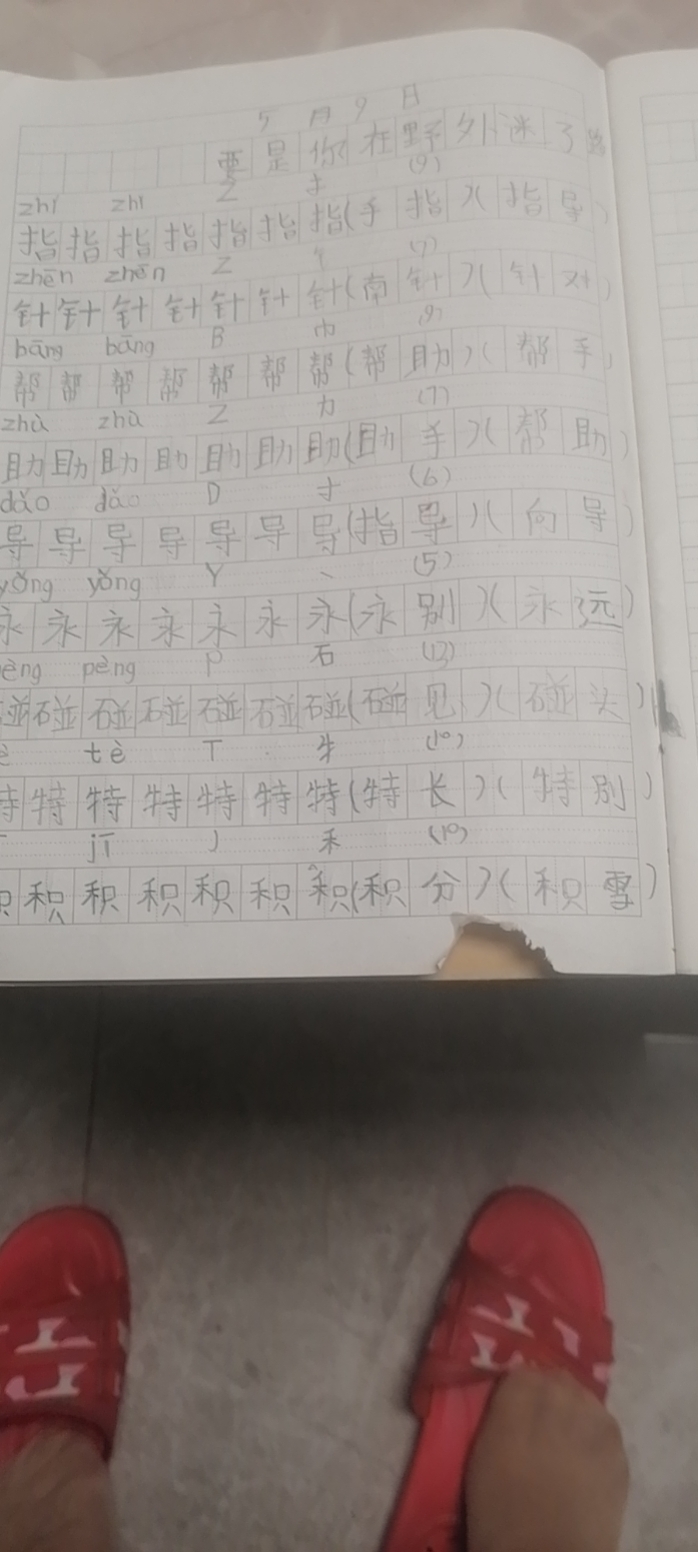 5月9日
要是你在野外迷了路
zhǐ zhǐ Z 扌 (9)
指指指指指指指(手指)(指导)
zhēn zhēn Z 钅 (7)
针针针针针针针(南针)(针对)
bāng bāng B 巾 (9)
帮帮帮帮帮帮帮(帮助)(帮手)
zhù zhù Z 力 (7)
助助助助助助助(助手)(帮助)
dǎo dǎo D 寸 (6)
导导导导导导导(指导)(向导)
yǒng yǒng Y 丶 (5)
永永永永永永永(永别)(永远)
pèng pèng P 石 (13)
碰碰碰碰碰碰碰(碰见)(碰头)
tè T 牛 (10)
特特特特特特特(特长)(特别)
jī J 禾 (10)
积积积积积积积(积分)(积雪)